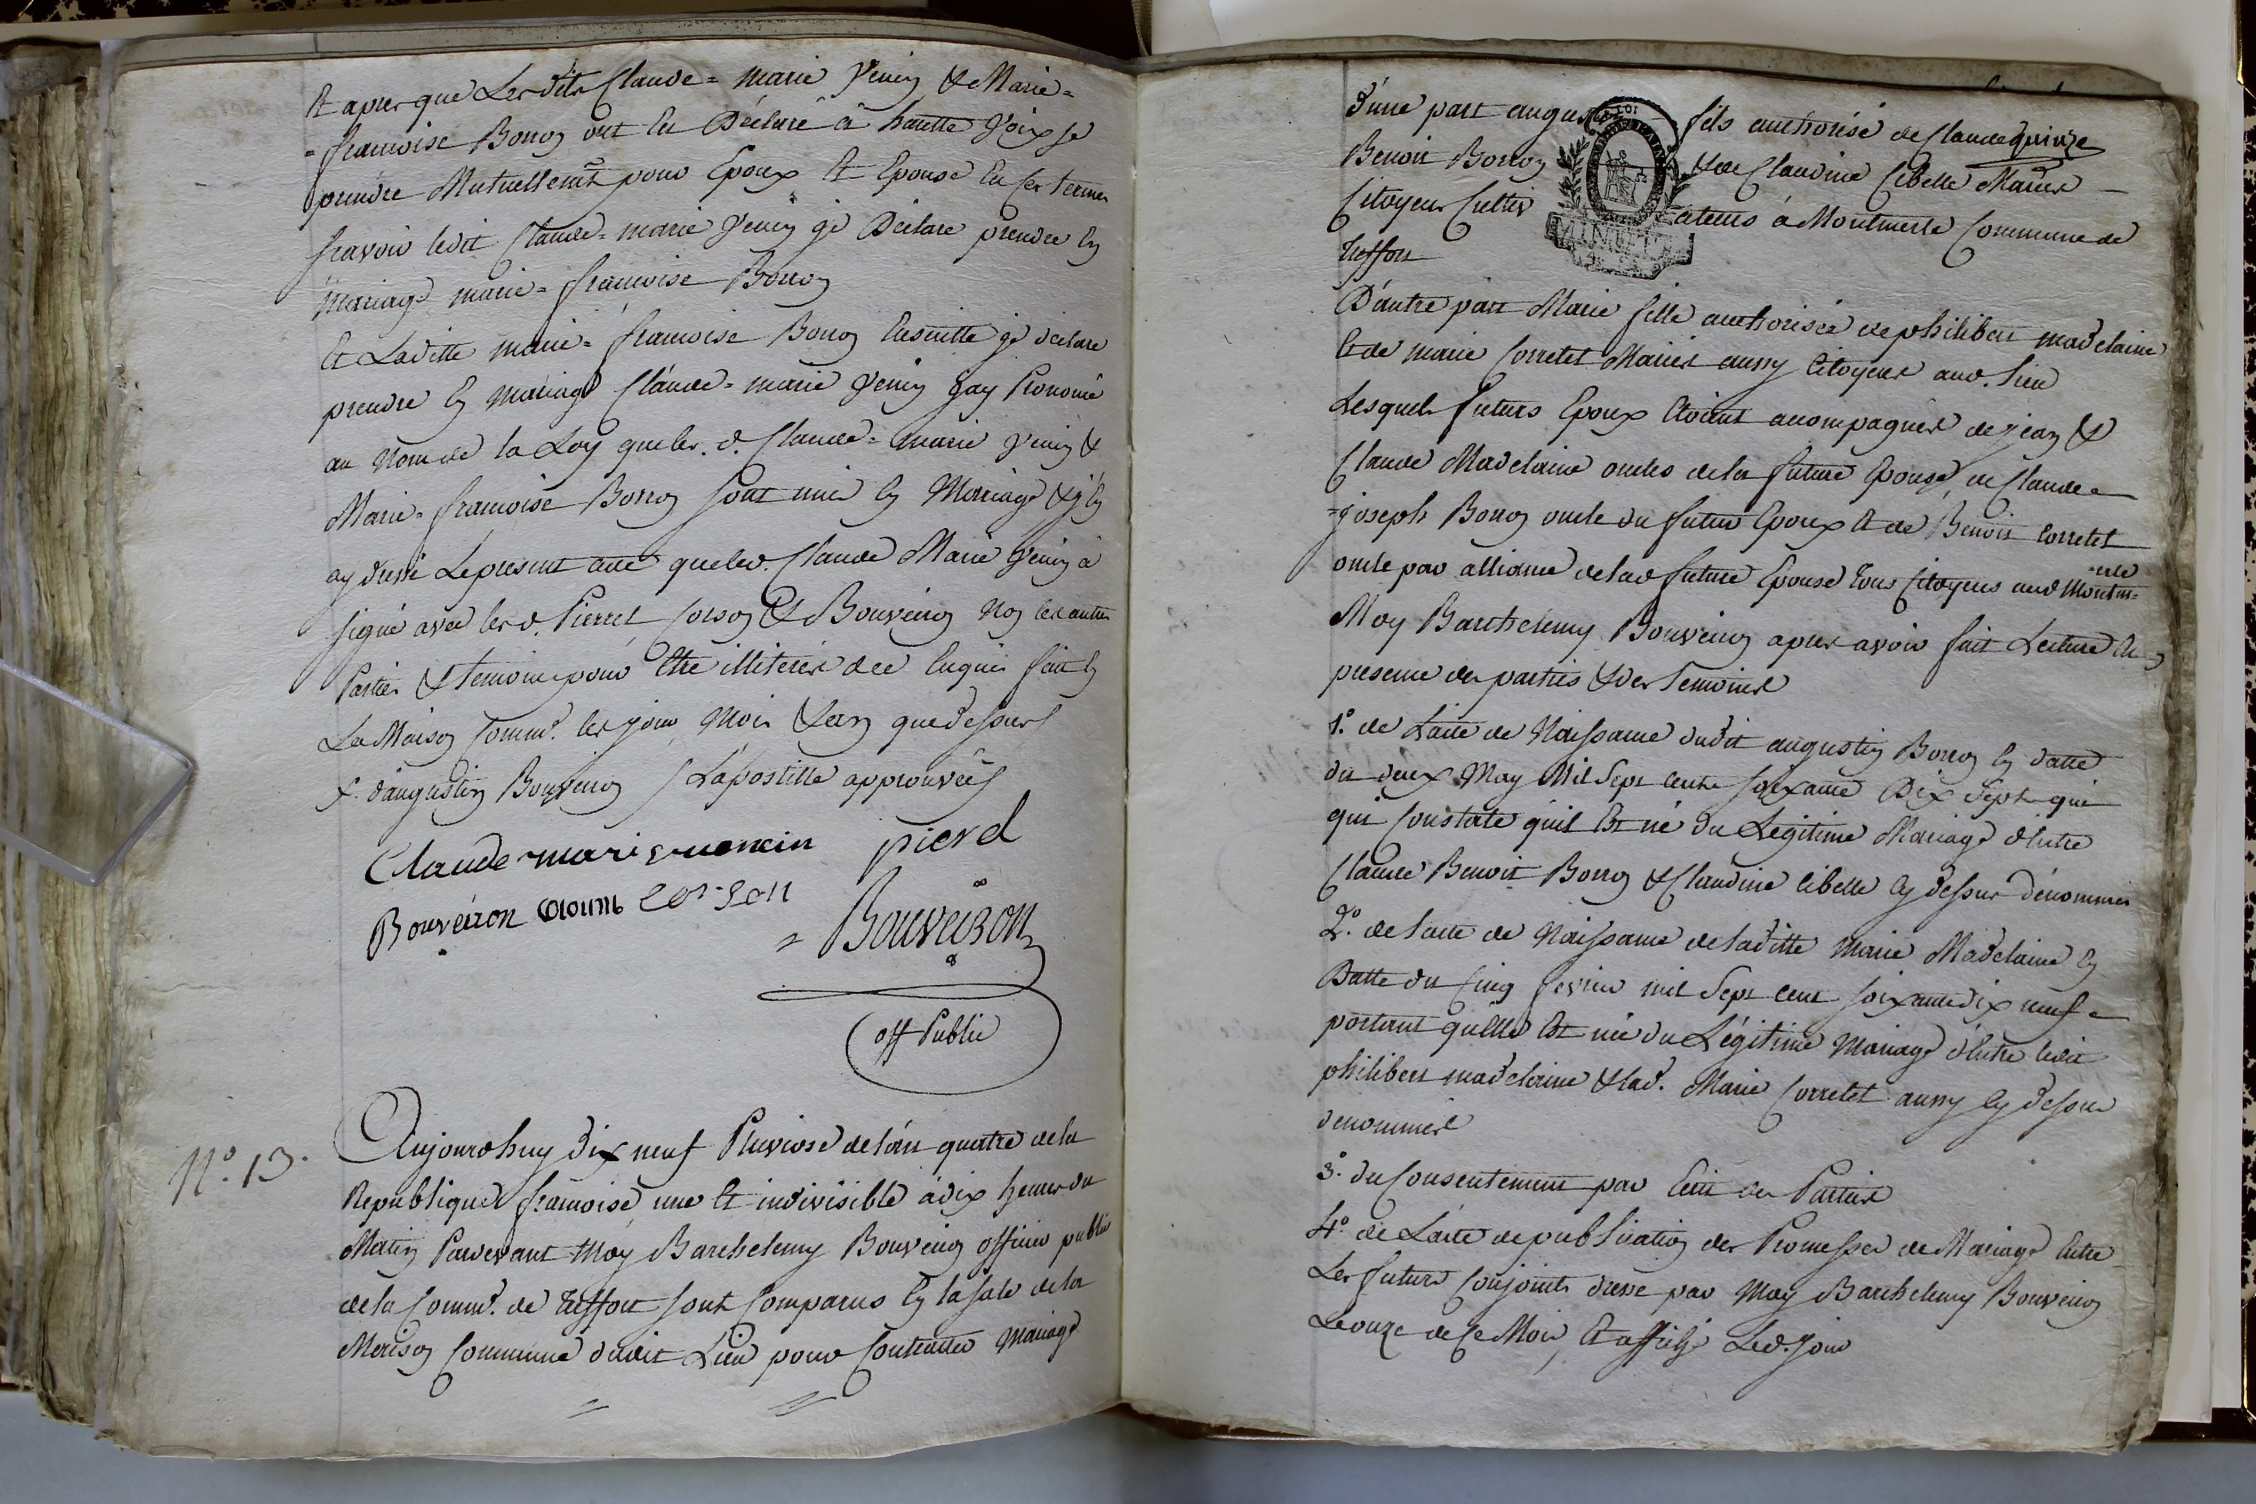 Et apres que Lesdits Claude = Marie Venin & Marie =
= francoise Borron ont eu Déclaré à hautte Voix se
prendre Mutuellemt pour Epoux et Epouse En ces termes
savoir ledit Claude = marie Venin je Déclare prendre En
mariage marie = francoise Borron
Et Laditte marie = francoise Borron Ensuitte je déclare
prendre En Mariage Claude = marie Venin jay Prononcé
au Nom de la Loy que les d. Claude = marie Venin &
Marie = francoise Borron sont unis En Mariage & j'En
ay dressé Le present acte que led. Claude Marie Venin à
signé avec les d. Pierrel Corson & Bouveiron Non les autres
Parties & temoins pour Etre illiterés de ce Enquis fait En
La Maison Comme. les jour Mois & an que dessus
d'augustin Bouveiron L'apostille approuvée
Claude marie vuenein pierd
Bouvéiron corson
= Bouveiron
off Public
N.o 13.
Aujourdhuy dix neuf Pluviose de l'an quatre de la
Republique francoise une et indivisible à dix heures du
Matin Pardevant Moy Barthelemy Bouveiron officier public
de la Comme. de treffort sont Comparus En la sale de la
Maison Commune dudit Lieu pour Contracter Mariage
d'une part augustin fils authorisé de Claude quinze
Benoit Borron & de Claudine Cibelle Mariés
Citoyens Cultivateurs à Montmerle Commune de
treffort
D'autre part Marie fille authorisée de philibert madelaine
Et de marie Corretet Mariés aussy Citoyens aud. lieu
Lesquels futurs Epoux Etoient acompagnés de jean &
Claude Madelaine oncles de la future Epouse, de Claude =
= joseph Borron oncle du futur Epoux et de Benoit Corretet
oncle par alliance de lad future Epouse tous Citoyens aud Montm=
=erle
Moy Barthelemy Bouveiron apres avoir fait Lecture En
presence des parties & des temoins
1.o de L'acte de Naissance dudit augustin Borron En datte
du deux May Mil Sept Cents soixante Dix Sept qui
qui Constate qu'il Est né du Légitime Mariage d'Entre
Claude Benoit Borron & Claudine Cibelle Cy dessus dénommés
2.o de l'acte de Naissance de laditte Marie Madelaine En
Datte du Cinq fevrier mil Sept Cent soixante dix neuf =
portant qu'Elle Est née du Légitime Mariage d'Entre ledit
philibert madelaine & lad. Marie Corretet aussy Cy dessus
denommés
3.o du Consentement par Ecrit des Parties
4.o de L'acte de publication des Promesses de Mariage Entre
Les futurs Conjoints dressé par Moy Barthelemy Bouveiron
Le onze de Ce Mois Et affiché Led. jour